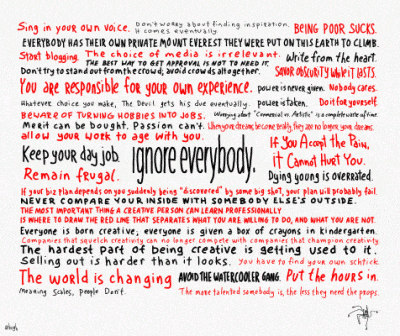 Sing in your own voice. Don't worry about finding inspiration. It comes eventually. BEING POOR SUCKS.
EVERYBODY HAS THEIR OWN PRIVATE MOUNT EVEREST THEY WERE PUT ON THIS EARTH TO CLIMB.
Start blogging. The choice of media is irrelevant. Write from the heart.
THE BEST WAY TO GET APPROVAL IS NOT TO NEED IT.
Don't try to stand out from the crowd; avoid crowds altogether. SAVOR OBSCURITY WHILE IT LASTS.
You are responsible for your own experience. power is never given. Nobody cares.
Whatever choice you make, The Devil gets his due eventually. power is taken. Do it for yourself.
BEWARE OF TURNING HOBBIES INTO JOBS. Worrying about "Commercial vs. Artistic" is a complete waste of time.
Merit can be bought. Passion can't. When your dreams become reality, they are no longer your dreams.
allow your work to age with you. If You Accept the Pain,
Keep your day job. ignore everybody. it Cannot Hurt You.
Remain frugal. Dying young is overrated.
If your biz plan depends on you suddenly being "discovered" by some big shot, your plan will probably fail.
NEVER COMPARE YOUR INSIDE WITH SOMEBODY ELSE'S OUTSIDE.
THE MOST IMPORTANT THING A CREATIVE PERSON CAN LEARN PROFESSIONALLY
IS WHERE TO DRAW THE RED LINE THAT SEPARATES WHAT YOU ARE WILLING TO DO, AND WHAT YOU ARE NOT.
Everyone is born creative; everyone is given a box of crayons in kindergarten.
Companies that squelch creativity can no longer compete with companies that champion creativity
The hardest part of being creative is getting used to it.
Selling out is harder than it looks. You have to find your own schtick.
The world is changing AVOID THE WATERCOOLER GANG. Put the hours in.
Meaning Scales, People Don't. The more talented somebody is, the less they need the props.